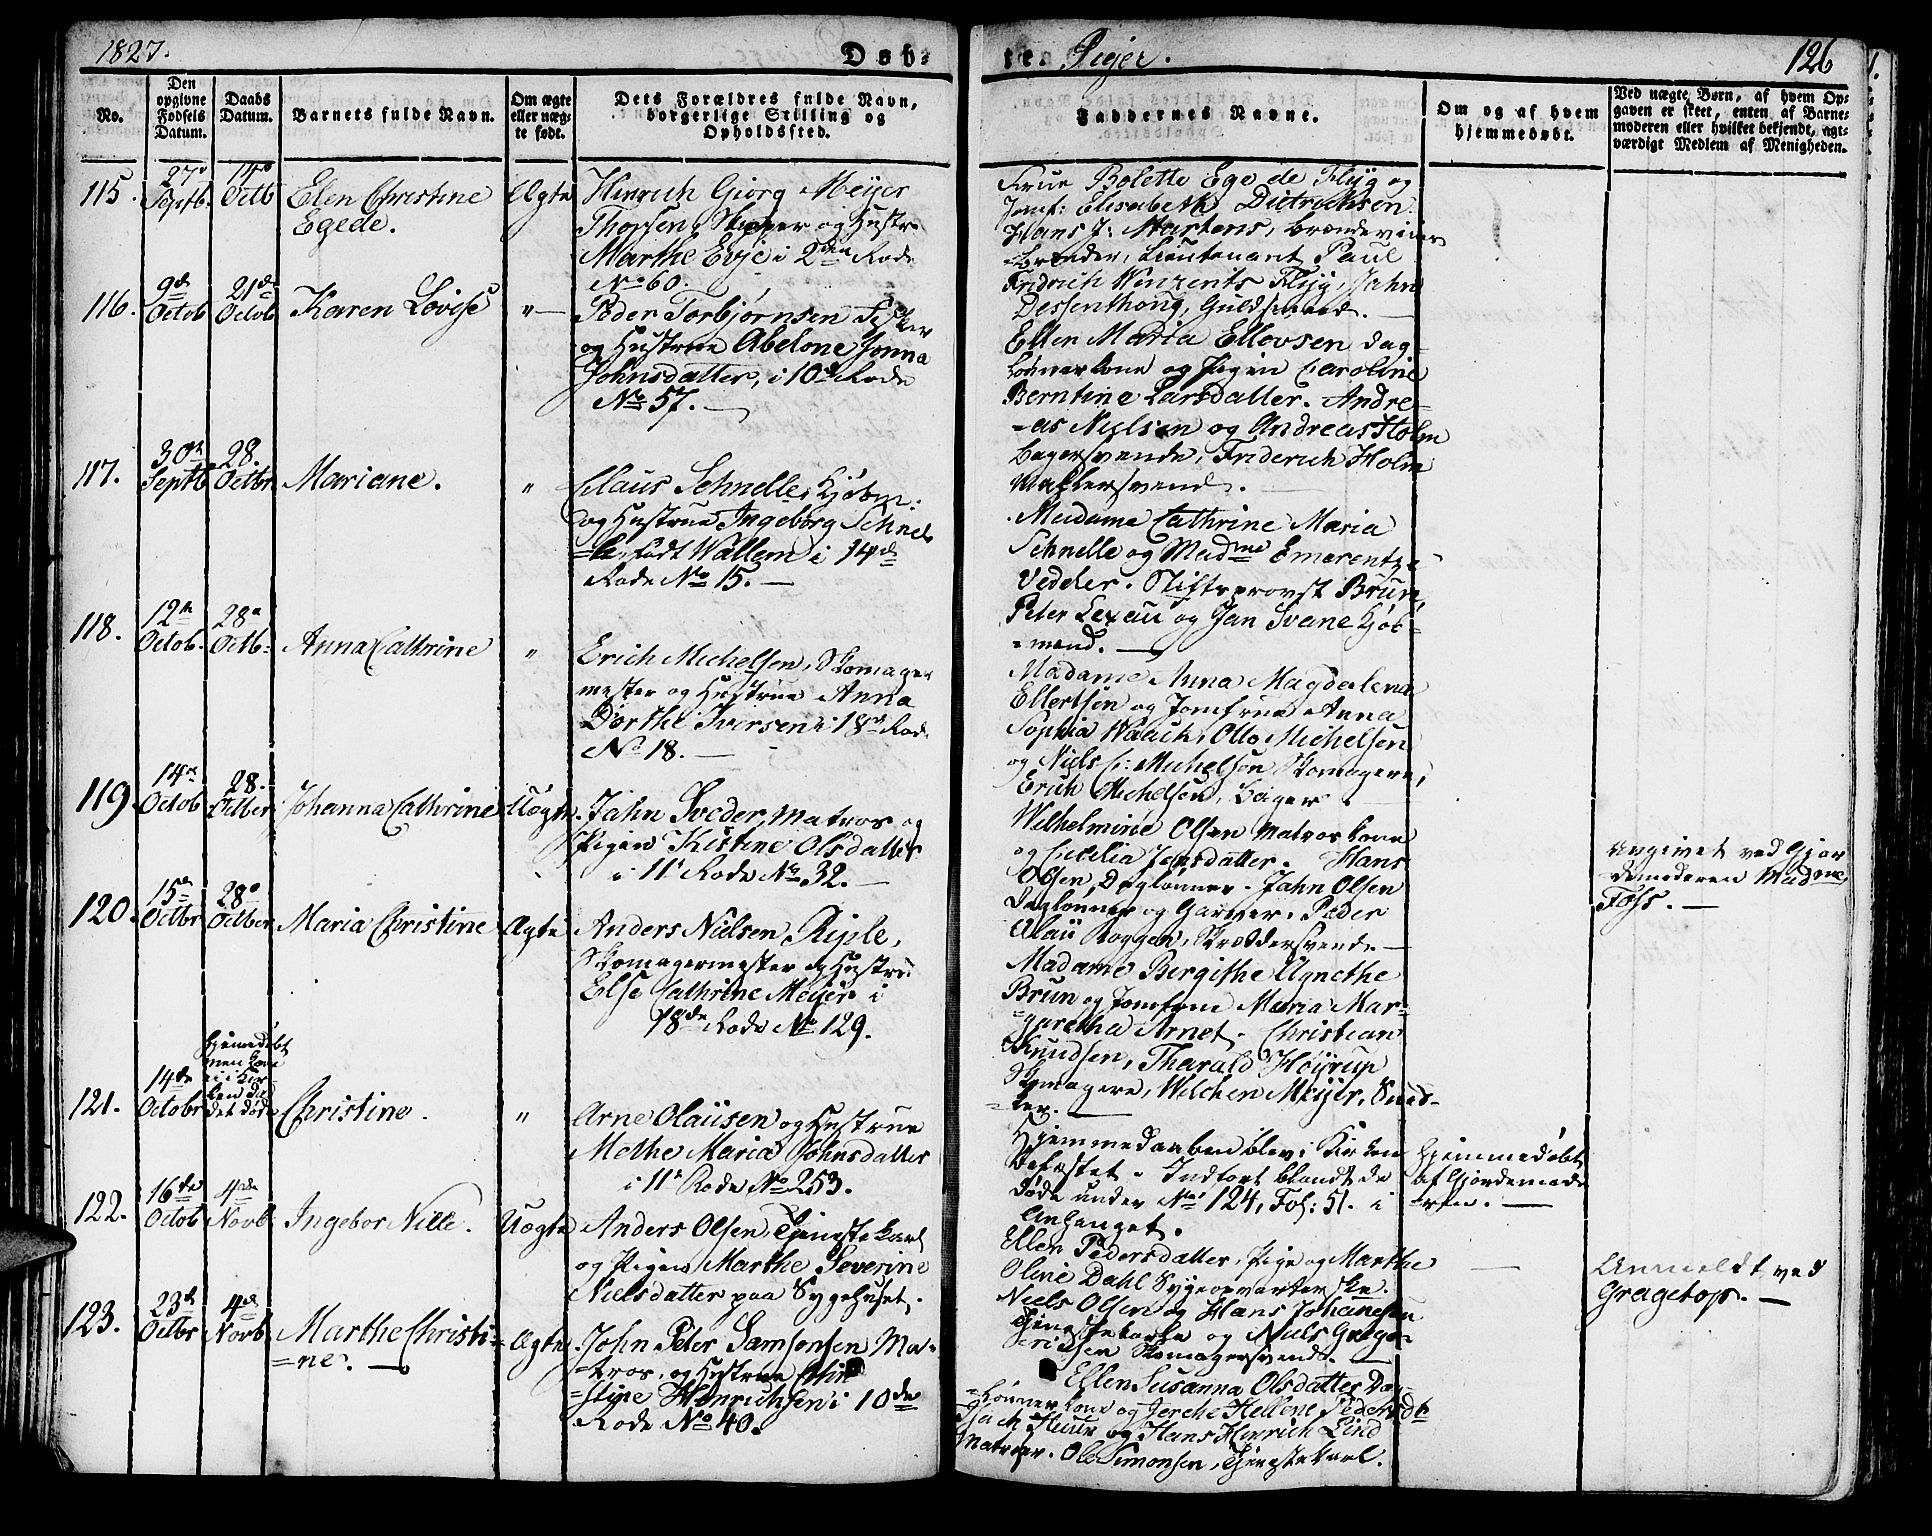 1827.
Døb-
te Piger.
126
No.
Den opgivne Fødsels Datum.
Daabs Datum.
Barnets fulde Navn.
Om ægte eller uægte født.
Dets Forældres fulde Navn, borgerlige Stilling og Opholdssted.
Faddernes Navne.
Om og af hvem hjemmedøbt.
Ved uægte Børn, af hvem Opgaven er skeet, enten af Barnemoderen eller hvilket bekjendt, agtværdigt Medlem af Menigheden.
115.
27de Septb.
14de Octb
Elen Christine
Egede.
Ægte
Hinrich Giørg Meyer
Thorsen, Skipper og Hustr.
Marthe Evje i 2den Rode
No 60.
Frue Bolette Egede Flyg og
Jomf: Elisabeth Dietrichsen.
Hans J: Martens, Brændeviins
=brænder, Lieutenant Paul
Fridrich Vinzents Flyg, Jahn
Dessenthong, Guldsmed.
116.
9de Octob
21de Octob
Karen Lovise
"
Peder Torbjørnsen Fisker
og Hustrue Abelone Jonna
Johnsdatter, i 10de Rode
No 57.
Ellen Maria Ellevsen Dag-
lønnerkone og Pigen Caroline
Berntine Larsdatter. Andre-
-as Nielsen og Andreas Holm
Bagersvende, Friderich Holm
Mahlersvend.
117.
30te Septb
28 Octbr
Mariane.
"
Claus Schnelle, Kjøbm.
og Hustrue Ingeborg Schnel-
=le, født Wallem i 14de
Rode No 15.
Madame Cathrine Maria
Schnelle og Madme Emerentze
Vedeler. Stiftsprovst Brun,
Peter Lexau og Jan Svane Kjøb-
=mænd.
118.
12te Octob.
28de Octb.
Anna Cathrine
"
Erich Michelsen, Skomager
mester og Hustrue Anna
Dorthe Iversen i 18de Rode
No 18.
Madame Anna Magdalena
Ellertsen og Jomfrue Anna
Sophia Waack, Otto Michelsen
og Niels C: Michelsen Skomagere,
Erich Michelsen, Bager.
119.
14de Octob
28. Octber
Johanna Cathrine
Uægte.
Jahn Sveder, Matros og
Pigen Kistine Olsdatter
i 11te Rode No 32.
Wilhelmine Olsen Matroskone
og Cicilia Jensdatter. Hans
Olsen, Daglønner. Jahn Olsen
Daglønner og Garver. Peder
Olau Roggen, Skræddersvende
Angivet ved Gjor
demoderen Madme
Foss.
120.
15de Octbr
28de Octber
Maria Christine
Ægte
Anders Nielsen Riple,
Skomagermester og Hustru:
Else Cathrine Meyer i
18de Rode No 129.
Madame Bergithe Agnethe
Brun og Jomfrue Maria Mar-
=garetha Arnet. Christian
Knudsen, Tharald Høyrup
Skomagere, Wilchen Meyer, Sned-
=ker.
121.
14de Octobr
Hjemedøbt
men kom
ei i Kir-
ken da
det døde
Christine.
"
Arne Olausen og Hustrue
Methe Maria Johnsdatter
i 11te Rode No 253.
Hjemmedaaben blev i Kirken
Stadfæstet. Indført blandt de
døde under No 124, Fol: 51. i
Anhanget.
Hjemmedøbt
af Gjordemode
=ren.
122.
16de Octob
4de Novb
Ingebor Nille.
Uægte
Anders Olsen, Tjenestekarl
og Pigen Marthe Severine
Nielsdatter paa Sygehuset.
Ellen Pedersdatter, Pige og Marthe
Oline Dahl Sygeopvarterske.
Niels Olsen og Hans Johanesen
Tjenestekarle og Niels Grego-
=riusen Skomagersvend.
Anmeldt ved
Gragetop.
123.
23de Octbr
4de Novb
Marthe Christi-
=ne.
Ægte
John Peter Samsonsen Ma-
=tros, og Hustrue Chri
=stine Hinrichsen i 10de
Rode No 40.
Ellen Susanna Olsdatter Dag-
=lønnerkone og Jerche Hellene Pedersdtr
Isach Huun og Hans Hinrich Lind
Matroser. Ole Simonsen, Tjenestekarl.